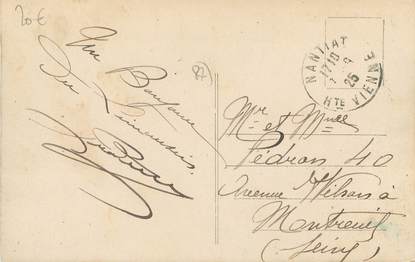 20€
Un Bonjour
Du Limousin
87
NANTIAT
17 10
25
Hte VIENNE
Mr et Mmelle
Pédron 40
Avenue Wilson à
Montreuil
(Seine)